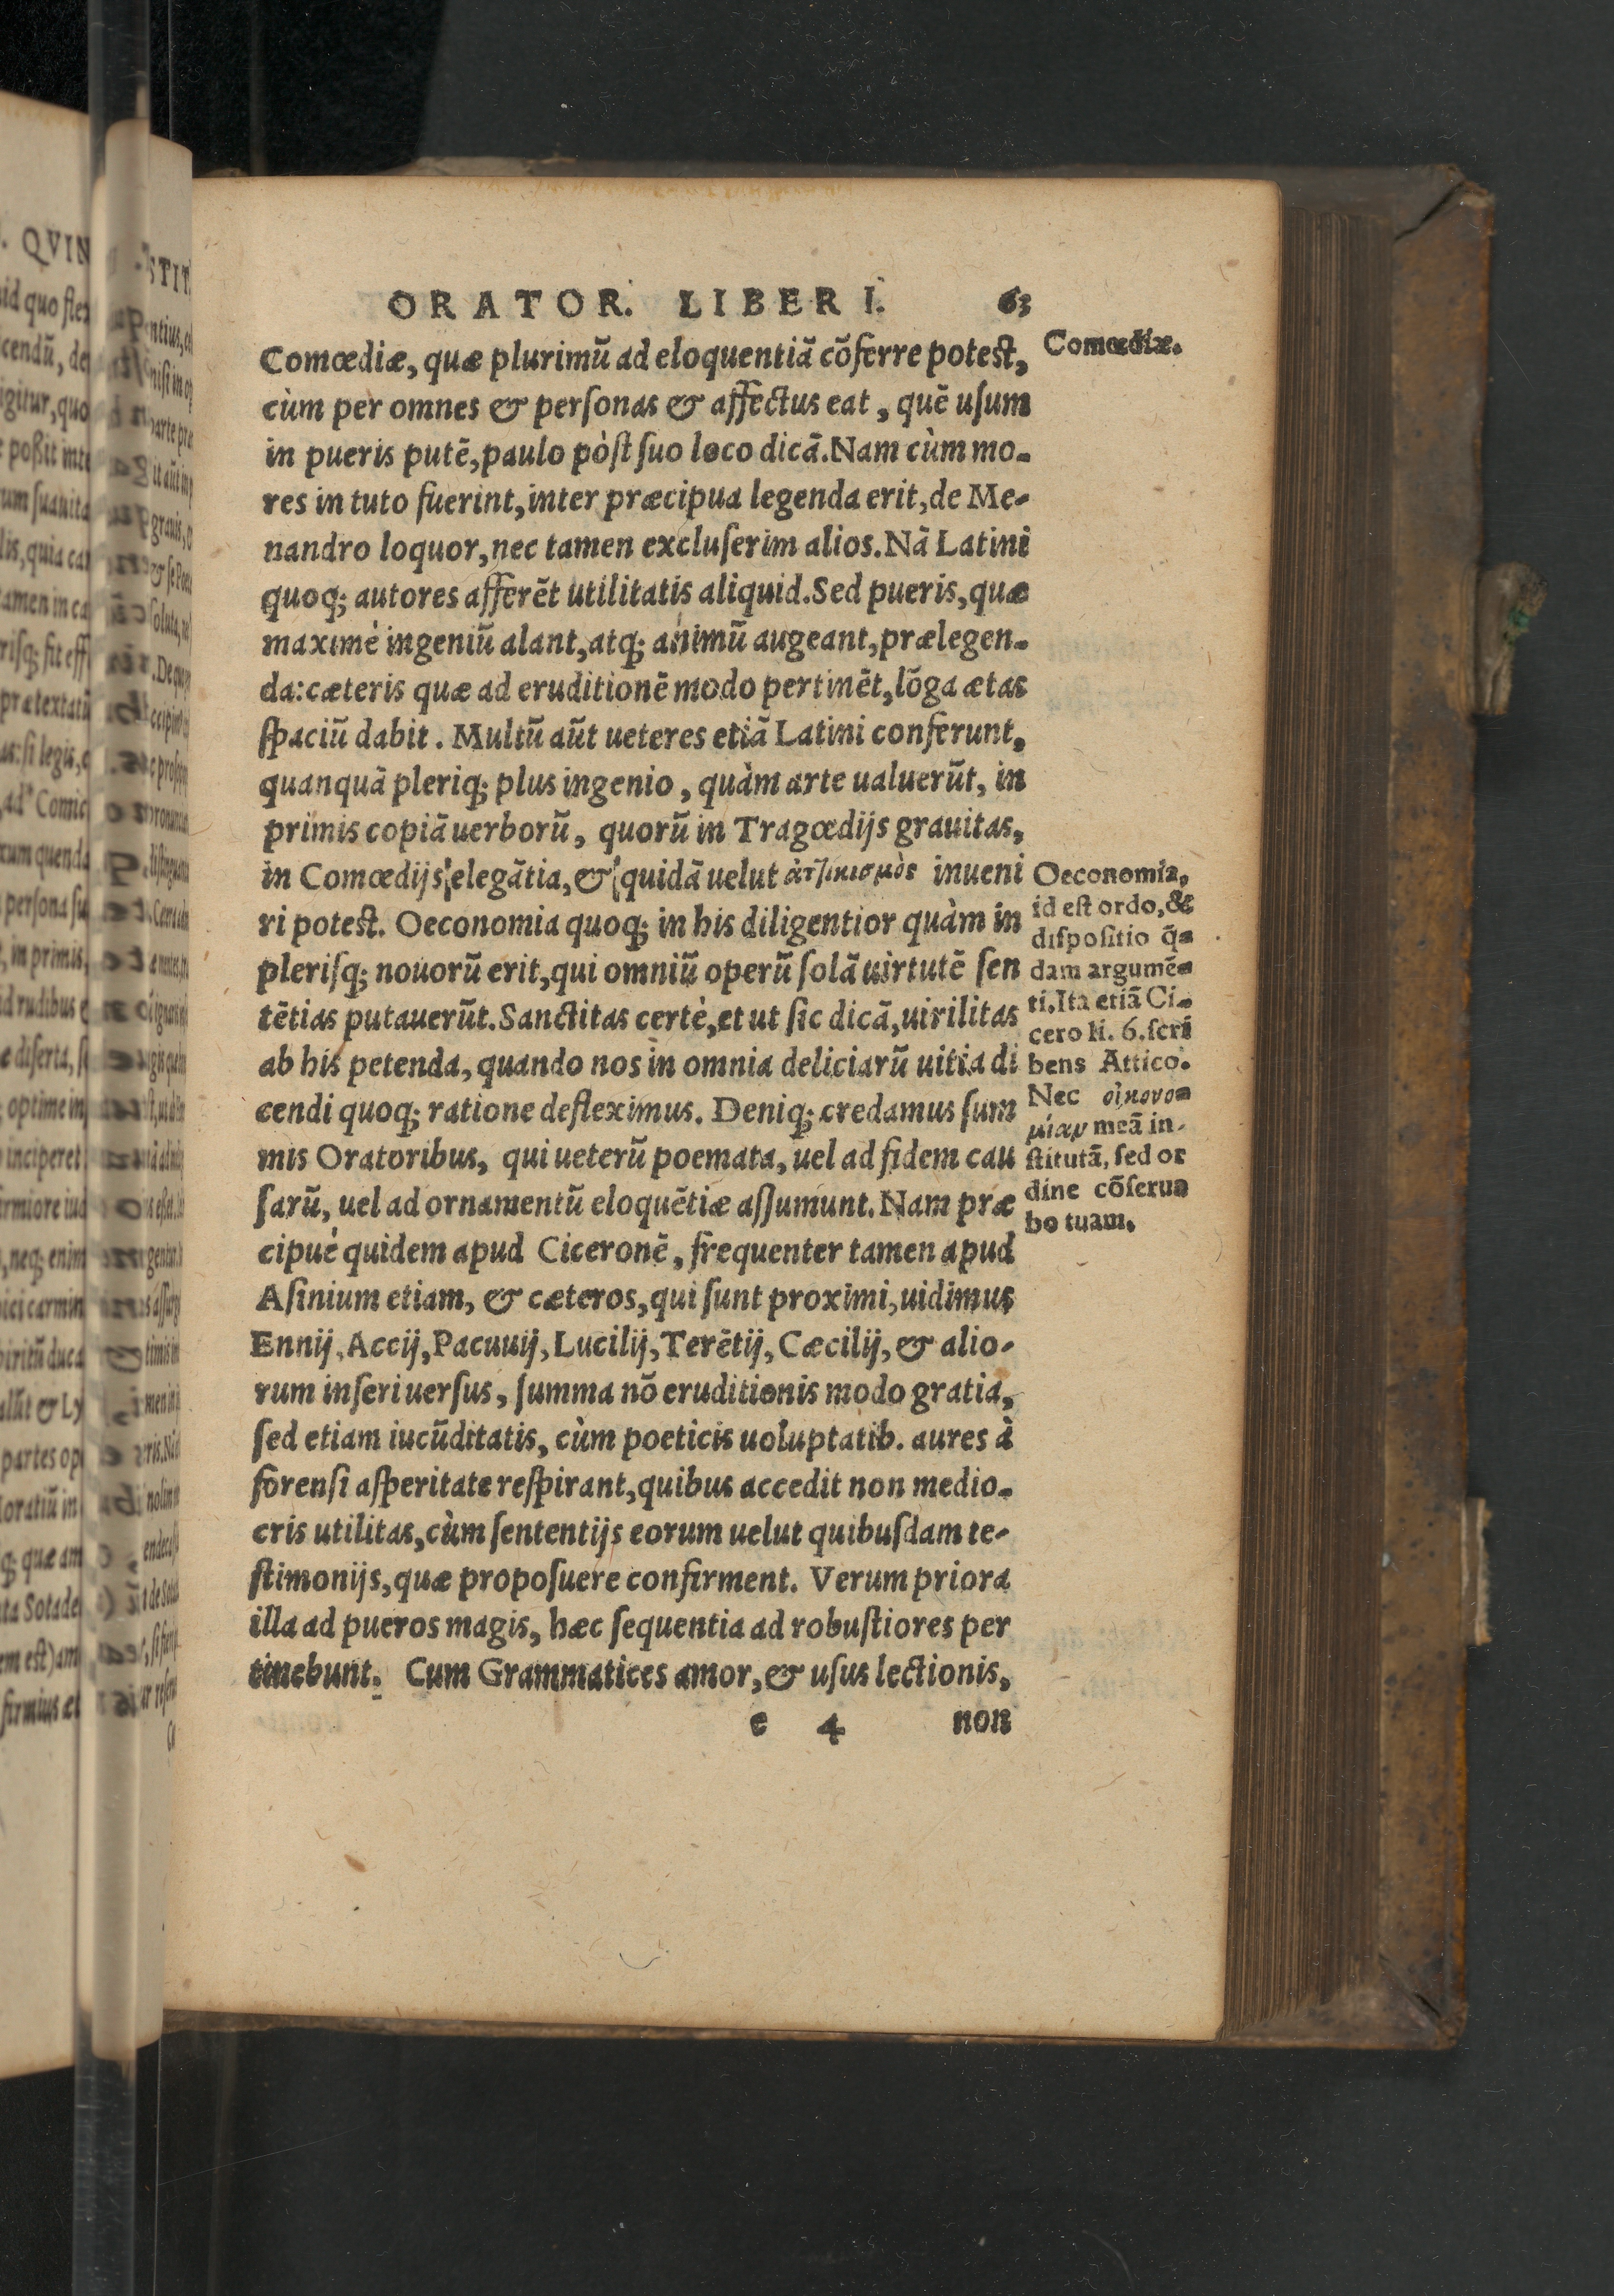 ORATOR. LIBER I. 63
Comœdiæ, quæ plurimū ad eloquentiā cōferre potest,
cùm per omnes & personas & affectus eat, quē usum
in pueris putē, paulo pòst suo loco dicā. Nam cùm mo-
res in tuto fuerint, inter præcipua legenda erit, de Me-
nandro loquor, nec tamen excluserim alios. Nā Latini
quoq; autores afferēt utilitatis aliquid. Sed pueris, quæ
maximè ingeniū alant, atq; animū augeant, prælegen-
da: cæteris quæ ad eruditionē modo pertinēt, lōga ætas
spaciū dabit. Multū aūt ueteres etiā Latini conferunt,
quanquā pleriq; plus ingenio, quàm arte ualuerūt, in
primis copiā uerborū, quorū in Tragœdijs grauitas,
in Comœdijs elegātia, & quidā uelut ἀτ]ικισμὸς inueni
ri potest. Oeconomia quoq; in his diligentior quàm in
plerisq; nouorū erit, qui omniū operū solā uirtutē sen
tētias putauerūt. Sanctitas certè, et ut sic dicā, uirilitas
ab his petenda, quando nos in omnia deliciarū uitia di
cendi quoq; ratione defleximus. Deniq; credamus sum
mis Oratoribus, qui ueterū poemata, uel ad fidem cau
sarū, uel ad ornamentū eloquētiæ assumunt. Nam præ
cipuè quidem apud Ciceronē, frequenter tamen apud
Asinium etiam, & cæteros, qui sunt proximi, uidimus
Ennij, Accij, Pacuuij, Lucilij, Terētij, Cæcilij, & alio-
rum inseri uersus, summa nō eruditionis modo gratia,
sed etiam iucūditatis, cùm poeticis uoluptatib. aures à
forensi asperitate respirant, quibus accedit non medio-
cris utilitas, cùm sententijs eorum uelut quibusdam te-
stimonijs, quæ proposuere confirment. Verum priora
illa ad pueros magis, hæc sequentia ad robustiores per
tinebunt. Cum Grammatices amor, & usus lectionis,
e 4 non
Comœdiæ.
Oeconomia,
id est ordo, &
dispositio q̄-
dam argumē-
ti. Ita etiā Ci-
cero li. 6. scri
bens Attico.
Nec οἰκονο-
μίαν meā in-
stitutā, sed or
dine cōserua
bo tuam.